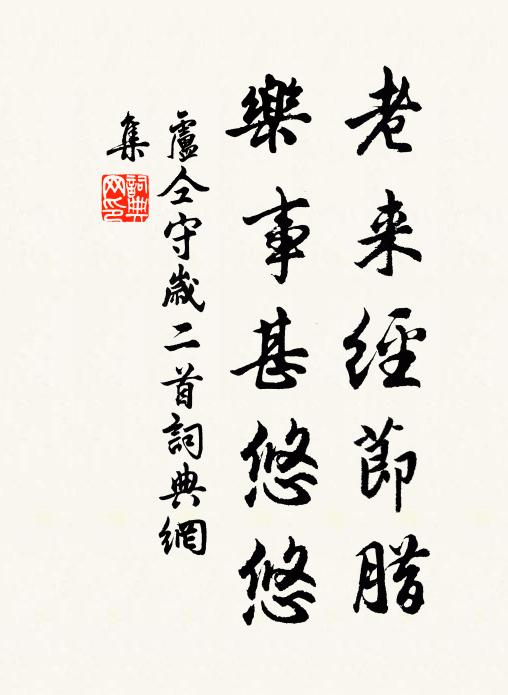 老来經節臘
樂事甚悠悠
盧仝守歲二首詞典網
集
詞典
网印